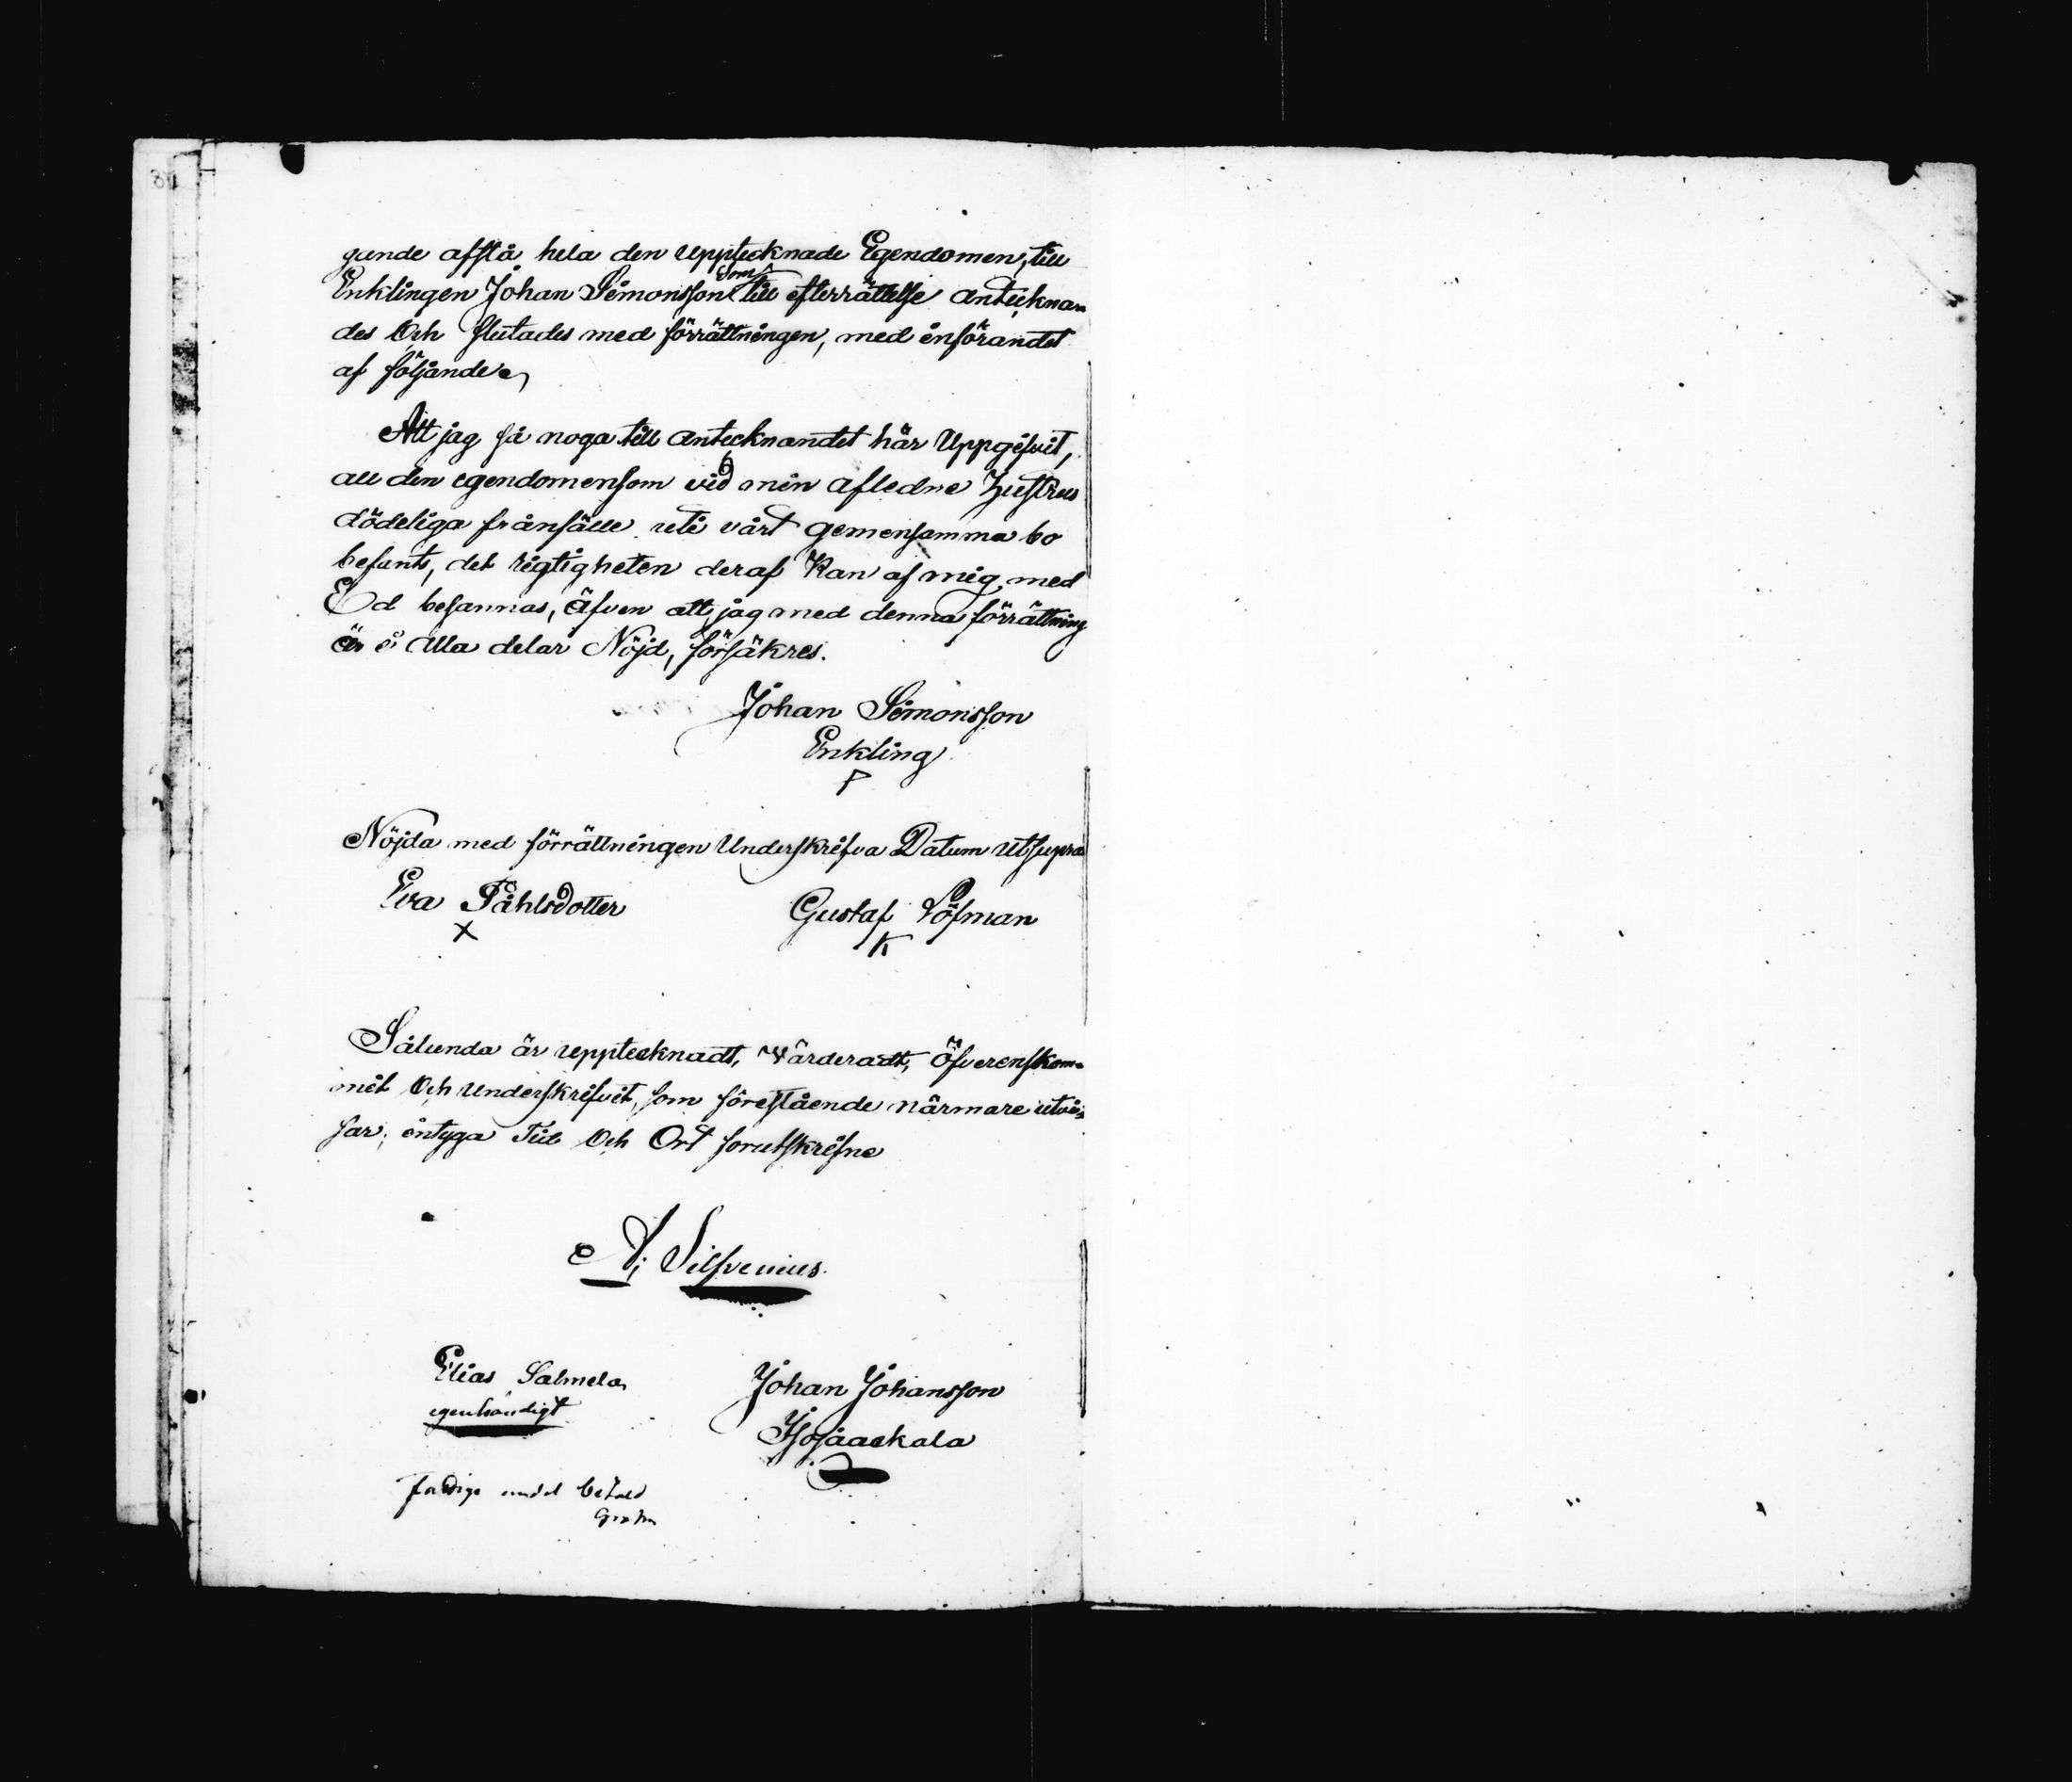 gande afstå hela den upptecknade Egendomen, till
Enklingen Johan Simonsson som till efterrättelse antecknan
des Och slutades med förrättningen, med införandet
af följande
Att jag så noga till antecknandet här Uppgifvit,
all den egendomen som vid min afledne Hustrus
dödeliga frånfälle uti vårt gemensamma bo
befunts, det rigtigheten deraf Kan af mig med
Ed besannas, äfven att jag med denna förrättning
är i alla delar Nöjd, försäkres.
Johan Simonsson
Enkling
Nöjda med förrättningen Underskrifva Datum utsupra
Eva Påhlsdotter Gustaf Löfman
X K
Sålunda är upptecknadt, Värderadt, Öfverenskom-
mit Och Underskrifvit, som förestående närmare utvi-
sar; intyga Tid Och Ort forutskrifne
A; Silfvenius.
Elias Salmela Johan Johansson
egenhändigt Isojaakala
fattige andel betald